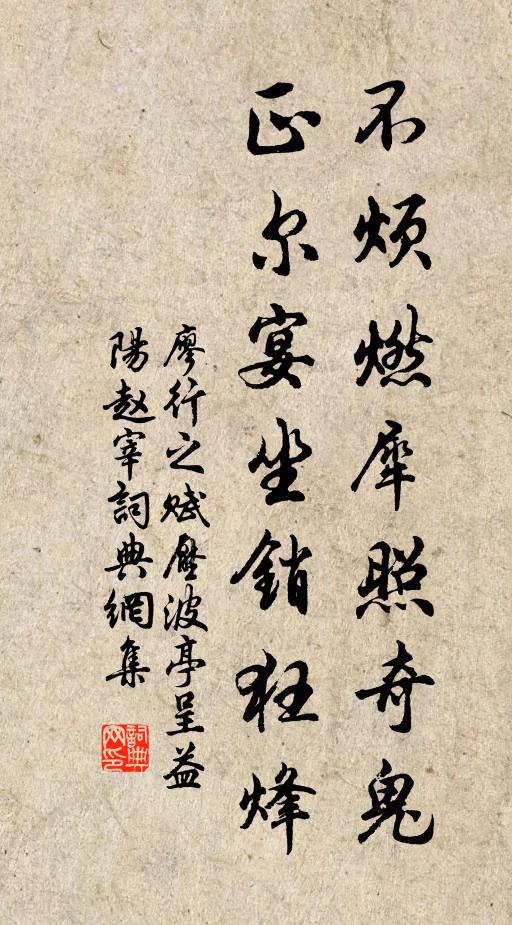 不烦燃犀照奇鬼
正尔宴坐销狂烽
廖行之赋压波亭呈益
阳赵宰詞典網集
詞典网印